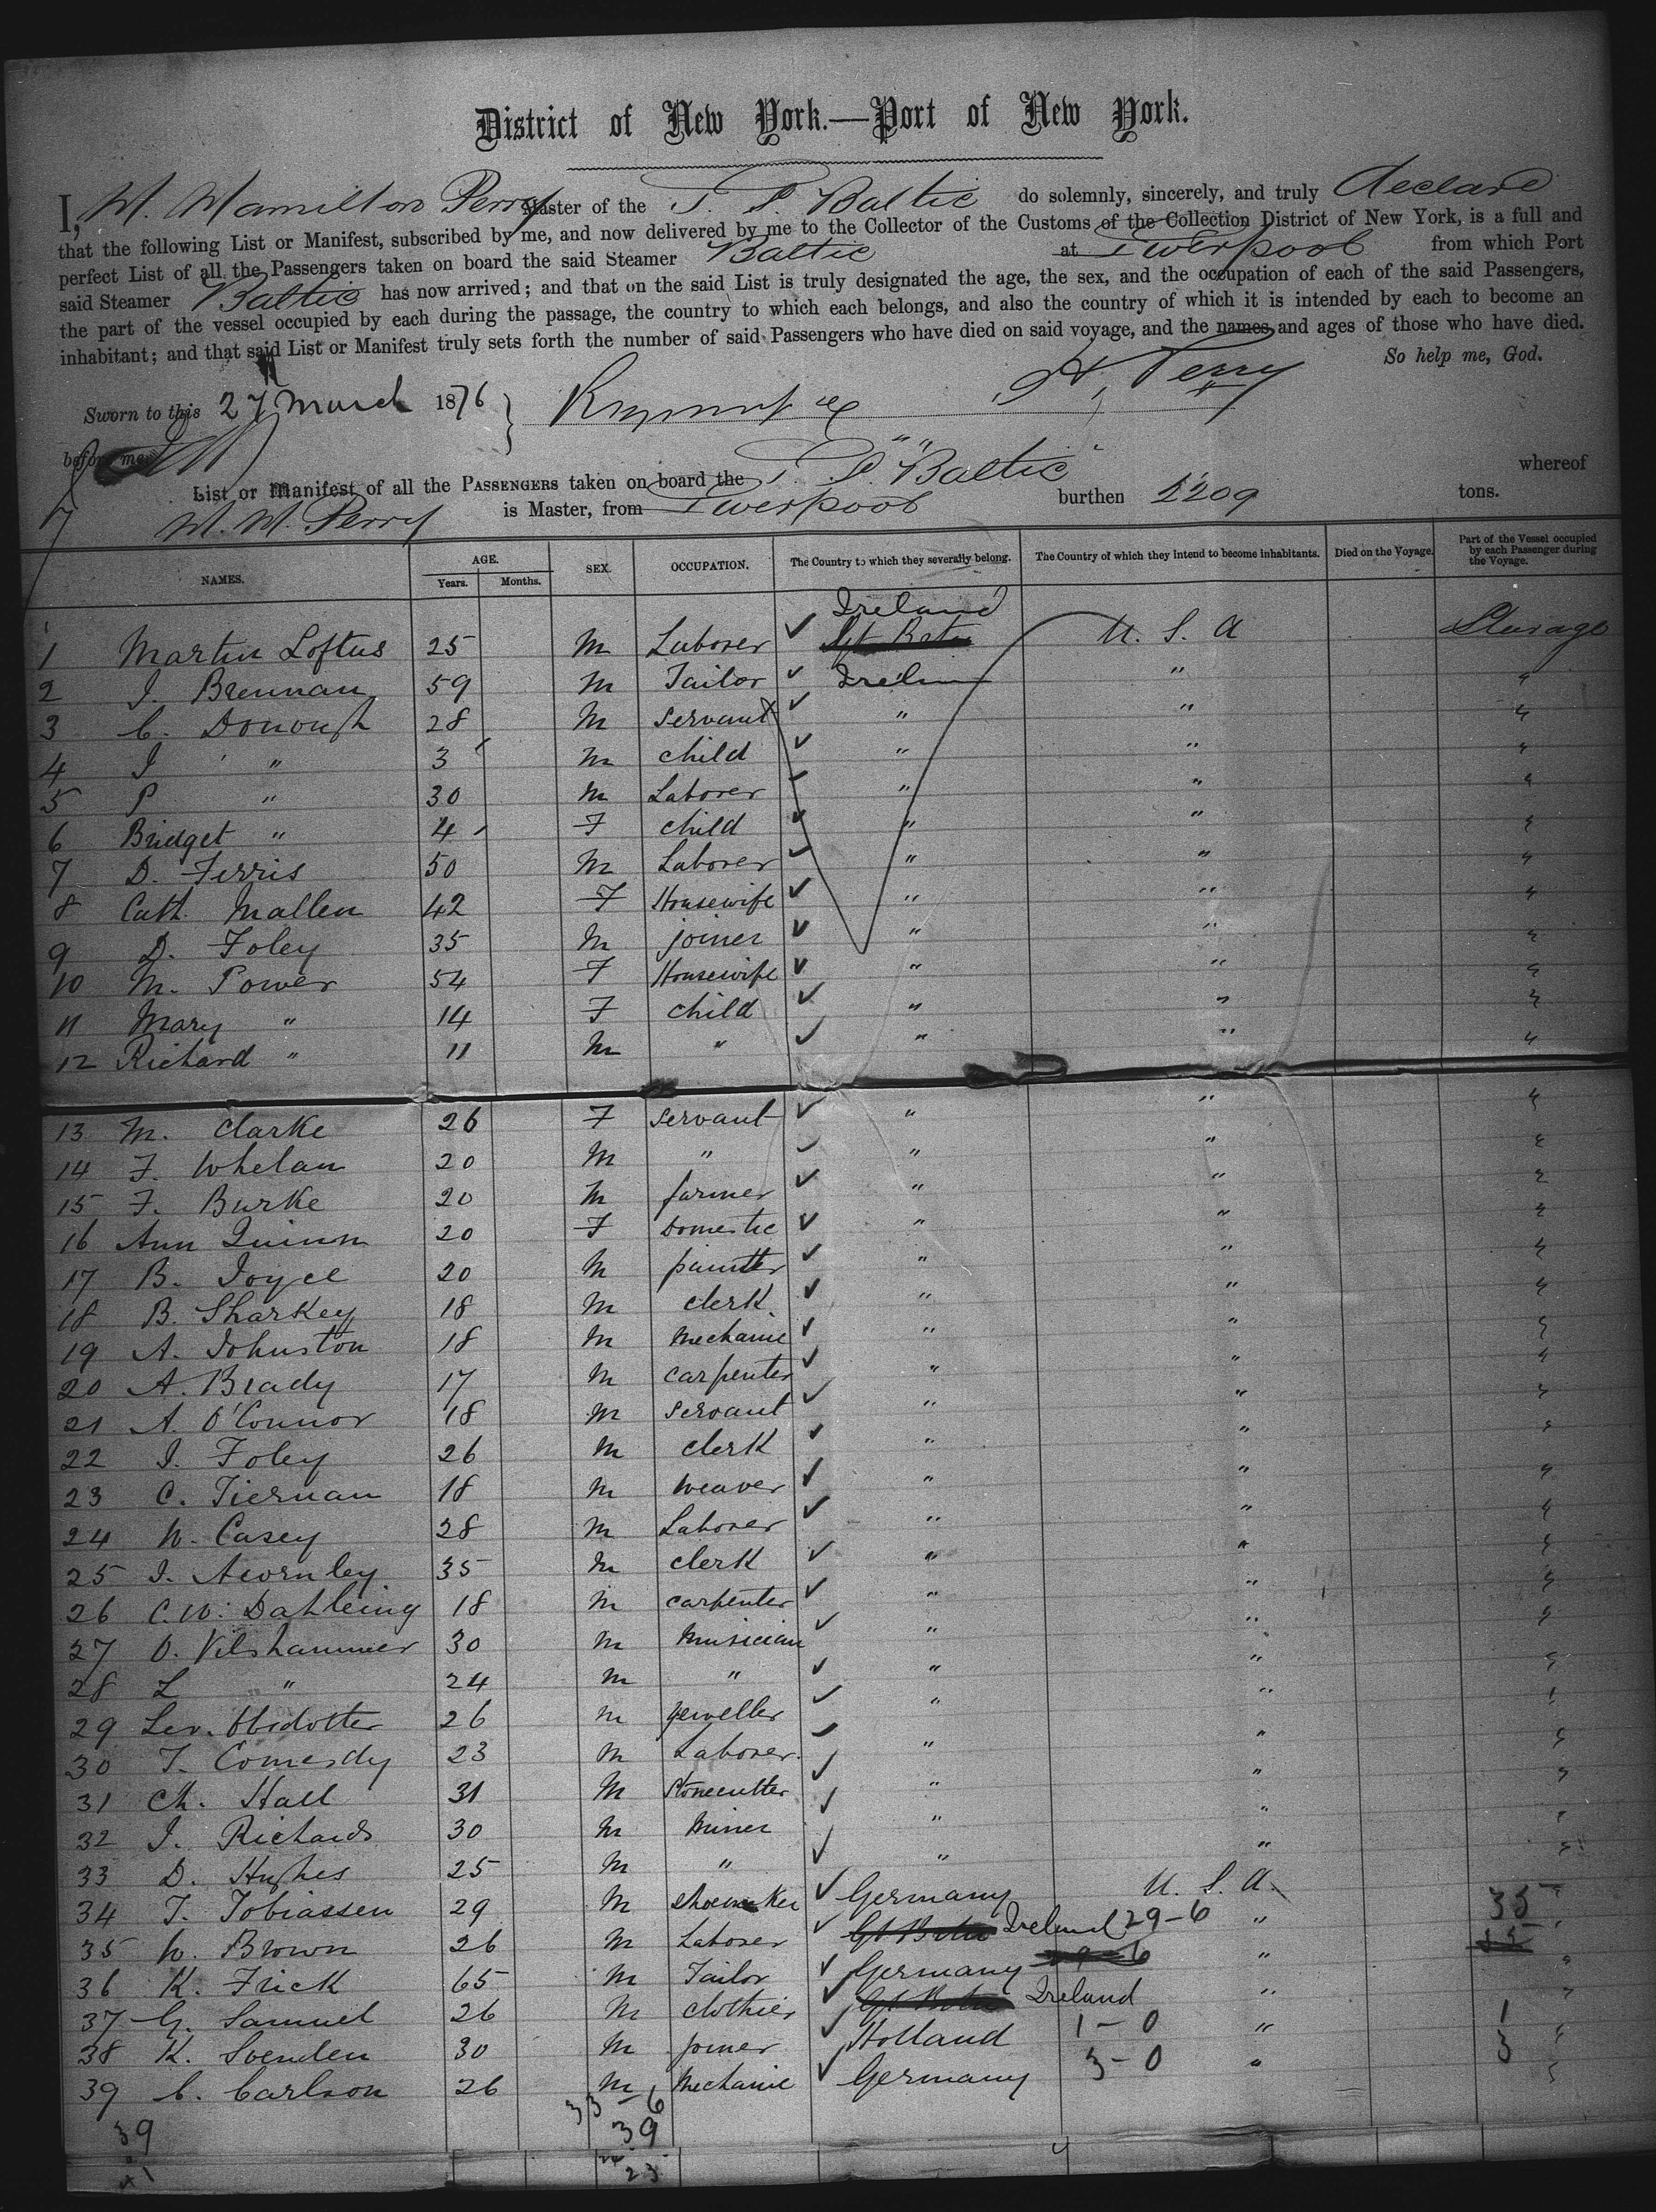 District of New York.—Port of New York.
I, W. Hamilton Perry Master of the S. S. Baltic do solemnly, sincerely, and truly declare
that the following List or Manifest, subscribed by me, and now delivered by me to the Collector of the Customs of the Collection District of New York, is a full and
perfect List of all the Passengers taken on board the said Steamer Baltic at Liverpool from which Port
said Steamer Baltic has now arrived; and that on the said List is truly designated the age, the sex, and the occupation of each of the said Passengers,
the part of the vessel occupied by each during the passage, the country to which each belongs, and also the country of which it is intended by each to become an
inhabitant; and that said List or Manifest truly sets forth the number of said Passengers who have died on said voyage, and the names and ages of those who have died.
So help me, God.
Sworn to this 27 March 1876 } H. Perry
before me
List or Manifest of all the PASSENGERS taken on board the S. S. "Baltic" whereof
W. H. Perry is Master, from Liverpool burthen 2209 tons.
NAMES. AGE. Years. Months. SEX. OCCUPATION. The Country to which they severally belong. The Country of which they intend to become inhabitants. Died on the Voyage. Part of the Vessel occupied by each Passenger during the Voyage.
Ireland
1 Martin Loftus 25 M Laborer ✓ U. S. A Steerage
2 J. Brennan 59 M Tailor ✓ Ireland " "
3 C. Donough 28 M Servant ✓ " " "
4 J " 3 M child ✓ " " "
5 P " 30 M Laborer ✓ " " "
6 Bridget " 4 F child ✓ " " "
7 D. Ferris 50 M Laborer ✓ " " "
8 Cath. Mallen 42 F Housewife ✓ " " "
9 D. Foley 35 M joiner ✓ " " "
10 M. Power 54 F Housewife ✓ " " "
11 Mary " 14 F child ✓ " " "
12 Richard " 11 M " ✓ " " "
13 M. Clarke 26 F Servant ✓ " " "
14 F. Whelan 20 M " ✓ " " "
15 F. Burke 20 M farmer ✓ " " "
16 Ann Quinn 20 F Domestic ✓ " " "
17 B. Joyce 20 M painter ✓ " " "
18 B. Sharkey 18 M clerk ✓ " " "
19 A. Johnston 18 M Mechanic ✓ " " "
20 A. Brady 17 M carpenter ✓ " " "
21 A. O'Connor 18 M Servant ✓ " " "
22 J. Foley 26 M clerk ✓ " " "
23 C. Tiernan 18 M weaver ✓ " " "
24 W. Casey 28 M Laborer ✓ " " "
25 J. Acornley 35 M clerk ✓ " " "
26 C. W. Dahleing 18 M carpenter ✓ " " "
27 O. Vilshammer 30 M Musician ✓ " " "
28 L " 24 M " ✓ " " "
29 Lev. 26 M jeweller ✓ " " "
30 T. Comesdy 23 M Laborer ✓ " " "
31 Ch. Hall 31 M Stonecutter ✓ " " "
32 J. Richards 30 M Miner ✓ " " "
33 D. Hughes 25 M " ✓ " " "
34 T. Tobiassen 29 M Shoemaker ✓ Germany U. S. A. 35 "
35 W. Brown 26 M Laborer ✓ Ireland 29-6 " "
36 K. Frick 65 M Tailor ✓ Germany " "
37 G. Samuel 26 M clothier ✓ Ireland " "
38 K. Svenden 30 M joiner ✓ Holland 1-0 " 1 "
39 C. Carlson 26 M Mechanic ✓ Germany 3-0 " 3 "
33-6
39 39
23